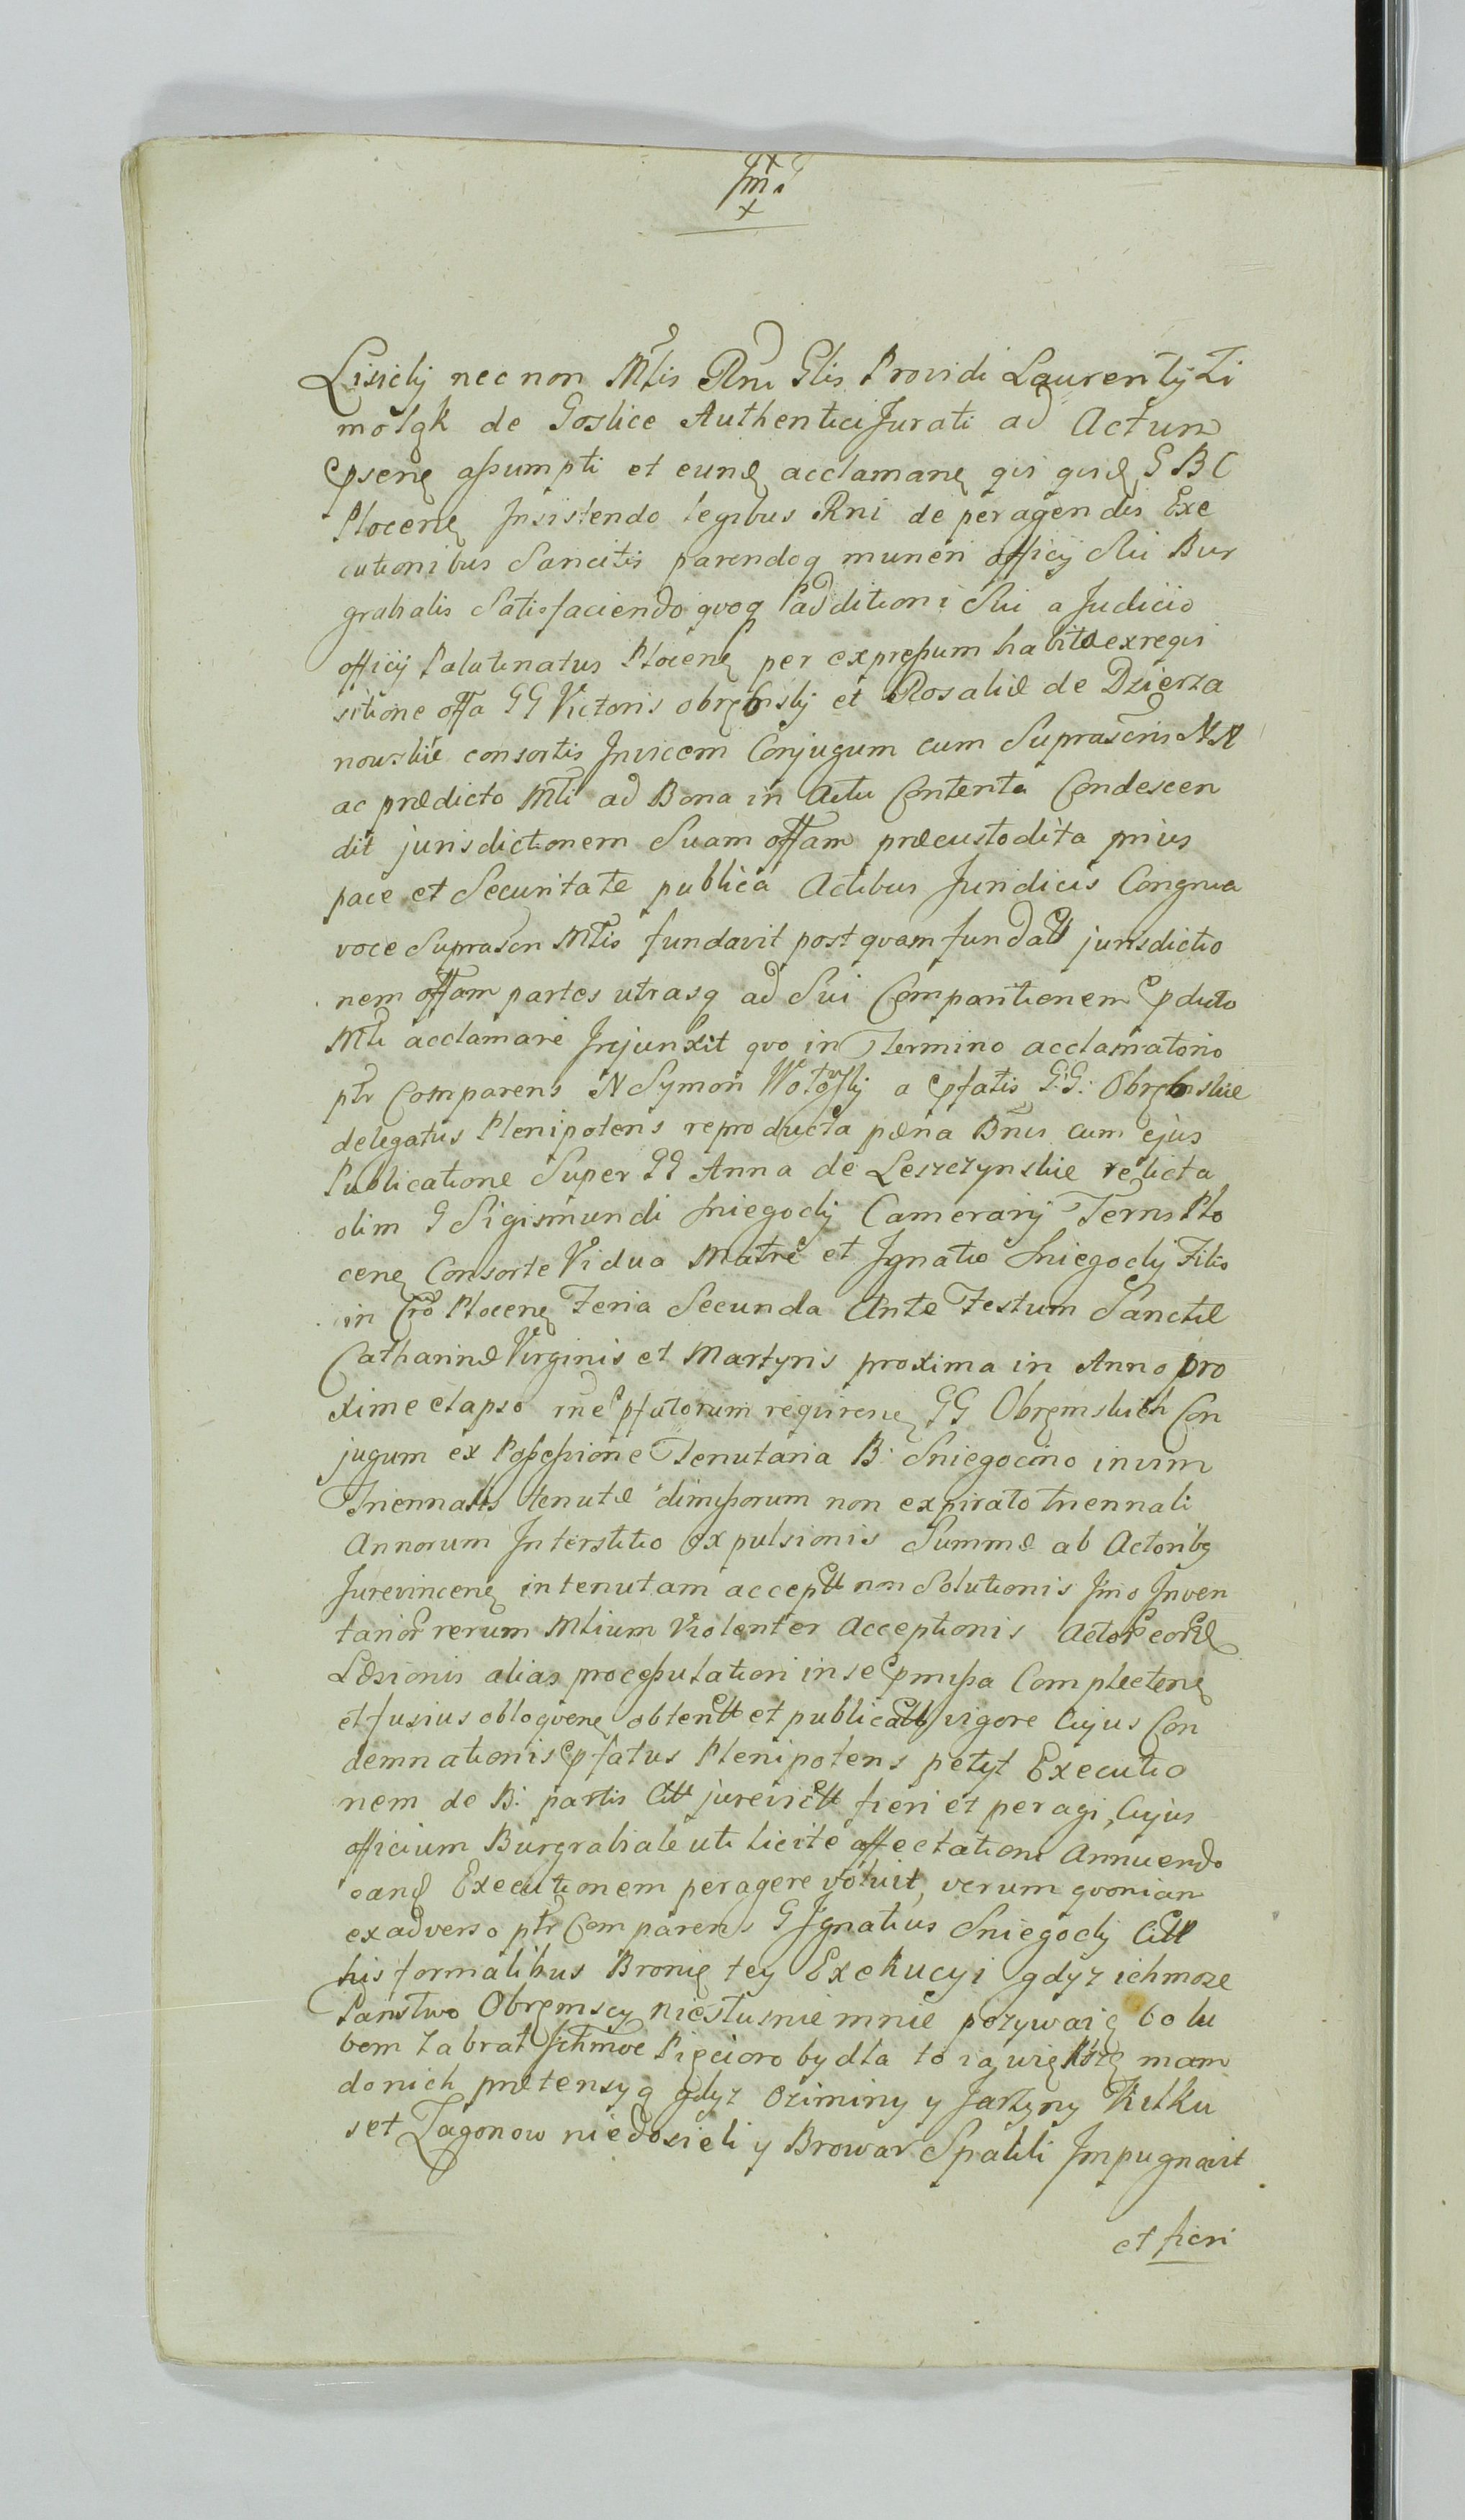 Lisicky nec non Mtis Rni Glis Providi Laurentÿ Zi
molgk de Goslice Authentici Jurati ad Actum
pseng assumpti et eund acclamang qsi qsd G B C
Ploceng Insistendo legibus Rni de peragendis Exe
cutionibus Sancitis parendoq muneri officÿ Sui Bur
grabialis Satisfaciendo qvoq additioni Sui a Judicio
officÿ Palatinatus Ploceng per expressum habitæ exregui
sitione offa GG Victoris Obrębskÿ et Rosaliæ de Dzierza
nowskie consortis Invicem Conjugum cum Suprascris NN
ac prædicto Mti ad Bona in Actu Contenta Condescen
dit jurisdictionem Suam offam præcustodita prius
pace et Securitate publica Actibus Juridicis Congrua
voce Suprascri Mtis fundavit postqvam fundatt jurisdictio
nem offam partes utrasq ad Sui Comparitionem pdicto
Mti acclamare Injunxit qvo in Termino acclamatorio
ptr Comparens N Symon Wołowskÿ a pfatis G.G: Obrębskie
delegatus Plenipotens reproducta pæna Bnis cum ejus
Publicatione Super GG Anna de Leszczynskie relicta
olim G Sigismundi Sniegocky Camerarÿ Terris Plo
ceng Consorte Vidua Matre et Ignatio Sniegocky Filio
in Cro Ploceng Feria Secunda Ante Festum Sanctæ
Catharinæ Virginis et Martyris proxima in Anno pro
xime elapso rne pfatorum regvireng GG Obręmskich Con
jugum ex Possessione Tenutaria B: Sniegocino in vim
Triennalis tenutæ dimissorum non expirato triennali
Annorum Interstitio expulsionis Summæ ab Actoribq
Jurevinceng in tenutam acceptt non Solutionis Imo Inven
tarior rerum Mtium Violenter Acceptionis Actor eord
Læsionis alias processulationi in se pmissa Complecteng
et fusius obloqveng obtentt et publicatt vigore Cujus Con
demnationis pfatus Plenipotens petÿt Executio
nem de B: partis Citt jurevictt fieri et peragi, Cujus
officium Burgrabiale uti licite affectationi Annuendo
eand Executionem peragere voluit, verum qvoniam
exadverso ptr Comparens G Ignatius Sniegocky Citt
his formalibus Bronię tey Exekucyi gdyz ichmoze
Panstwo Obręmscy niesłusnie mnie pozywaią bo lu
bom zabrał Ichmoc Pięcioro bydła to ią większą mam
do nich prætensyą gdyz Oziminy y Jarzyny Kilku
set Zagonow niedosieli y Browar Spalili Impugnavit
et fieri